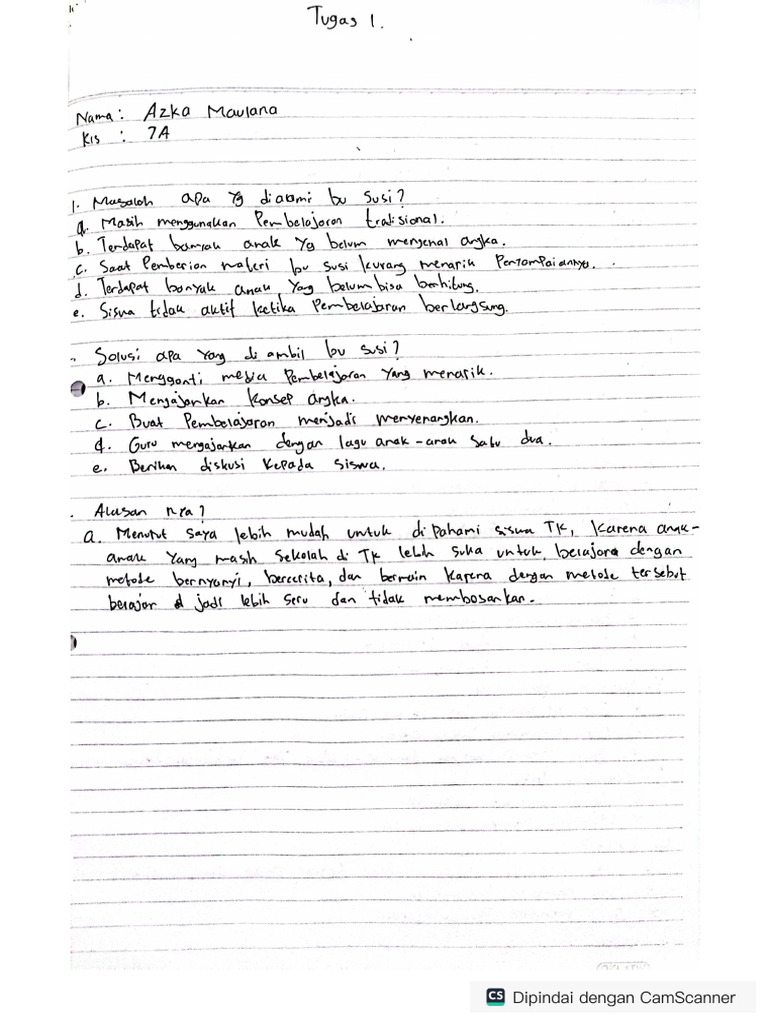 Tugas 1.
Nama : Azka Maulana
Kls : 7A
1. Masalah apa yg dialami bu Susi?
a. Masih menggunakan Pembelajaran tradisional.
b. Terdapat banyak anak yg belum mengenal angka.
c. Saat Pemberian materi bu susi kurang menarik Penyampaiannya.
d. Terdapat banyak anak yang belum bisa berhitung.
e. Siswa tidak aktif ketika Pembelajaran berlangsung.
Solusi apa yang di ambil bu susi?
a. Mengganti media Pembelajaran yang menarik.
b. Mengajarkan konsep angka.
c. Buat Pembelajaran menjadi menyenangkan.
d. Guru mengajarkan dengan lagu anak-anak satu dua.
e. Berikan diskusi kepada siswa.
Alasan nya?
a. Menurut saya lebih mudah untuk di pahami siswa TK, karena anak-
anak yang masih sekolah di TK lebih suka untuk belajar dengan
metode bernyanyi, bercerita, dan bermain karena dengan metode tersebut
belajar jadi lebih seru dan tidak membosankan.
CS Dipindai dengan CamScanner